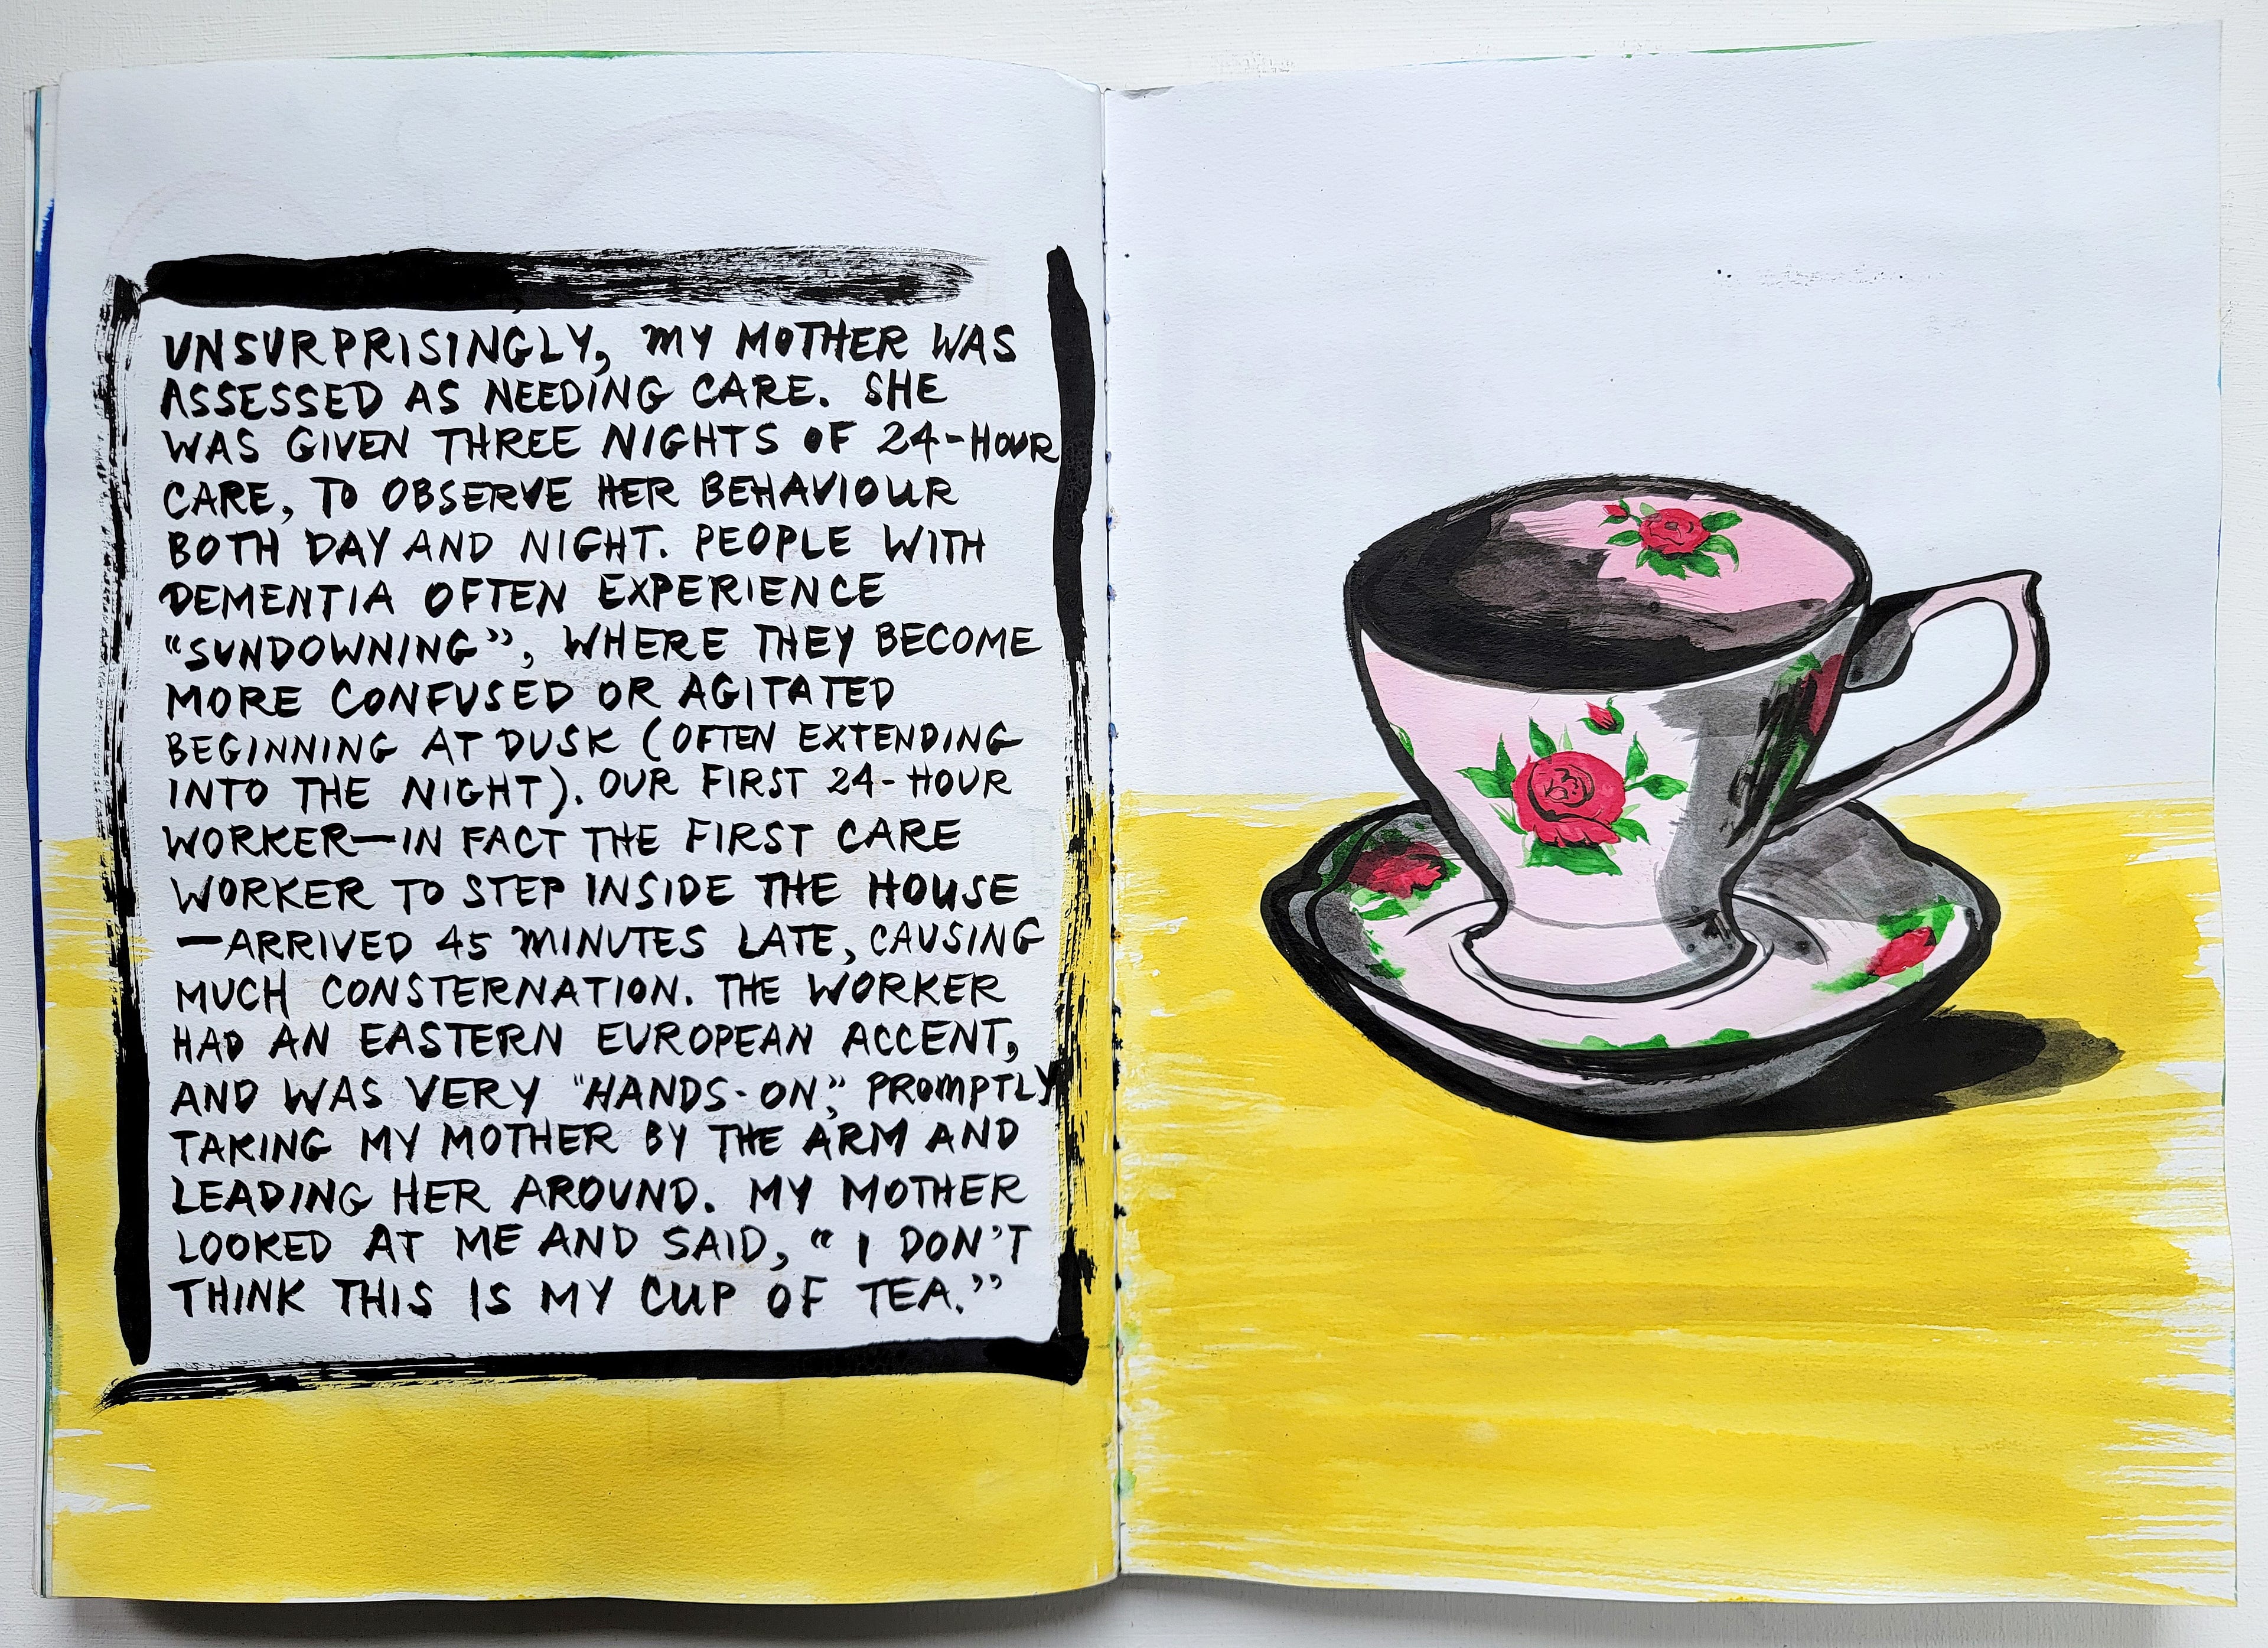 UNSURPRISINGLY, MY MOTHER WAS
ASSESSED AS NEEDING CARE. SHE
WAS GIVEN THREE NIGHTS OF 24-HOUR
CARE, TO OBSERVE HER BEHAVIOUR
BOTH DAY AND NIGHT. PEOPLE WITH
DEMENTIA OFTEN EXPERIENCE
"SUNDOWNING", WHERE THEY BECOME
MORE CONFUSED OR AGITATED
BEGINNING AT DUSK (OFTEN EXTENDING
INTO THE NIGHT). OUR FIRST 24-HOUR
WORKER—IN FACT THE FIRST CARE
WORKER TO STEP INSIDE THE HOUSE
—ARRIVED 45 MINUTES LATE, CAUSING
MUCH CONSTERNATION. THE WORKER
HAD AN EASTERN EUROPEAN ACCENT,
AND WAS VERY "HANDS-ON", PROMPTLY
TAKING MY MOTHER BY THE ARM AND
LEADING HER AROUND. MY MOTHER
LOOKED AT ME AND SAID, "I DON'T
THINK THIS IS MY CUP OF TEA."